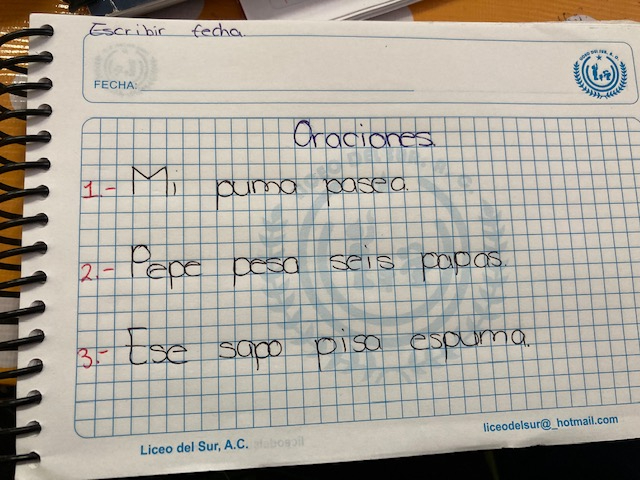 Escribir fecha.
FECHA:
Oraciones.
1.- Mi puma pasea.
2.- Pepe pesa seis papas.
3.- Ese sapo pisa espuma.
Liceo del Sur, A.C.
liceodelsur@_hotmail.com